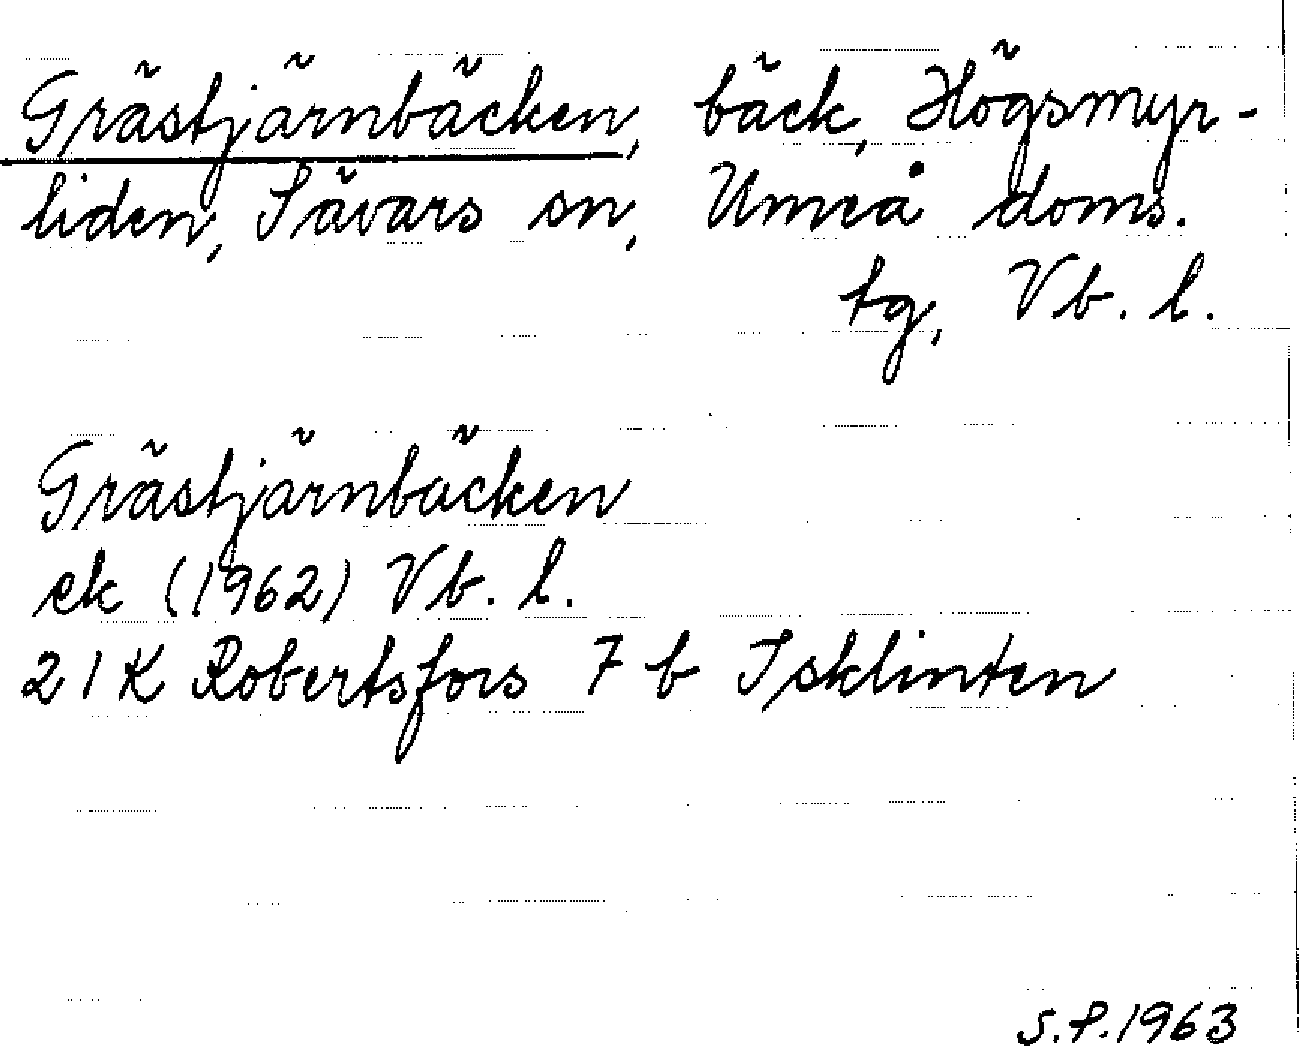 Grästjärnbäcken, bäck, Högsmyr-
liden, Sävars sn, Umeå doms.
tg, Vb. l.
Grästjärnbäcken
ek (1962) Vb. l.
21K Robertsfors 7 b Isklinten
S.P. 1963